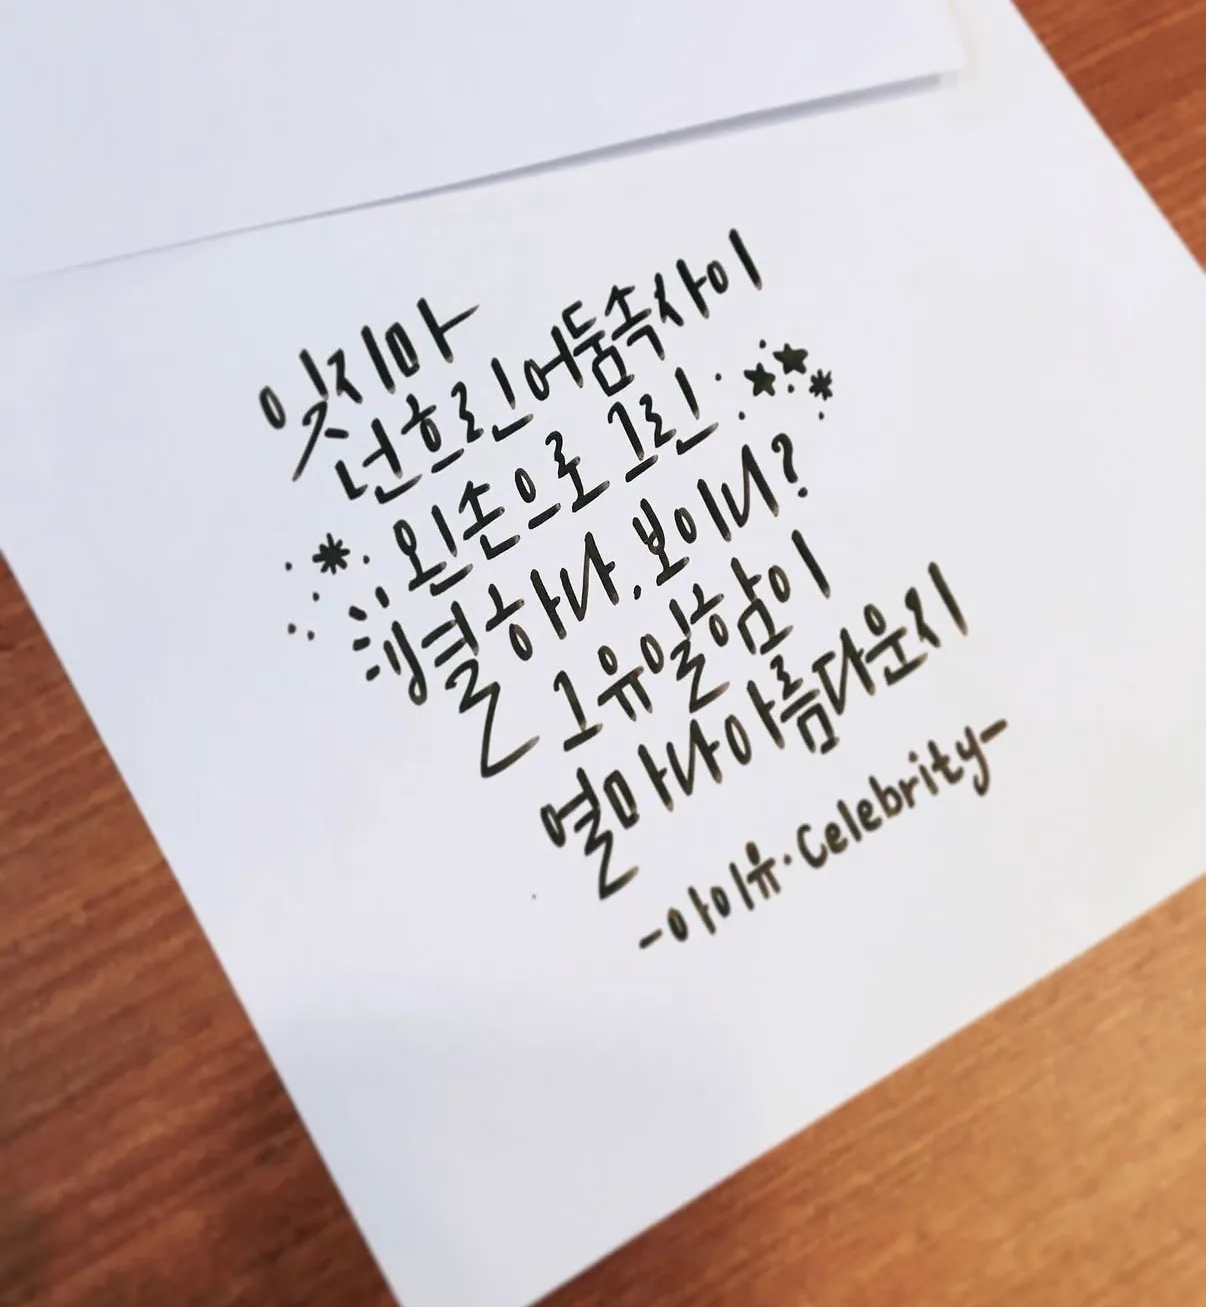 잊지마
넌 흐린 어둠 속 사이
왼손으로 그린
별 하나. 보이니?
그 유일함이
얼마나 아름다운지
-아이유·Celebrity-